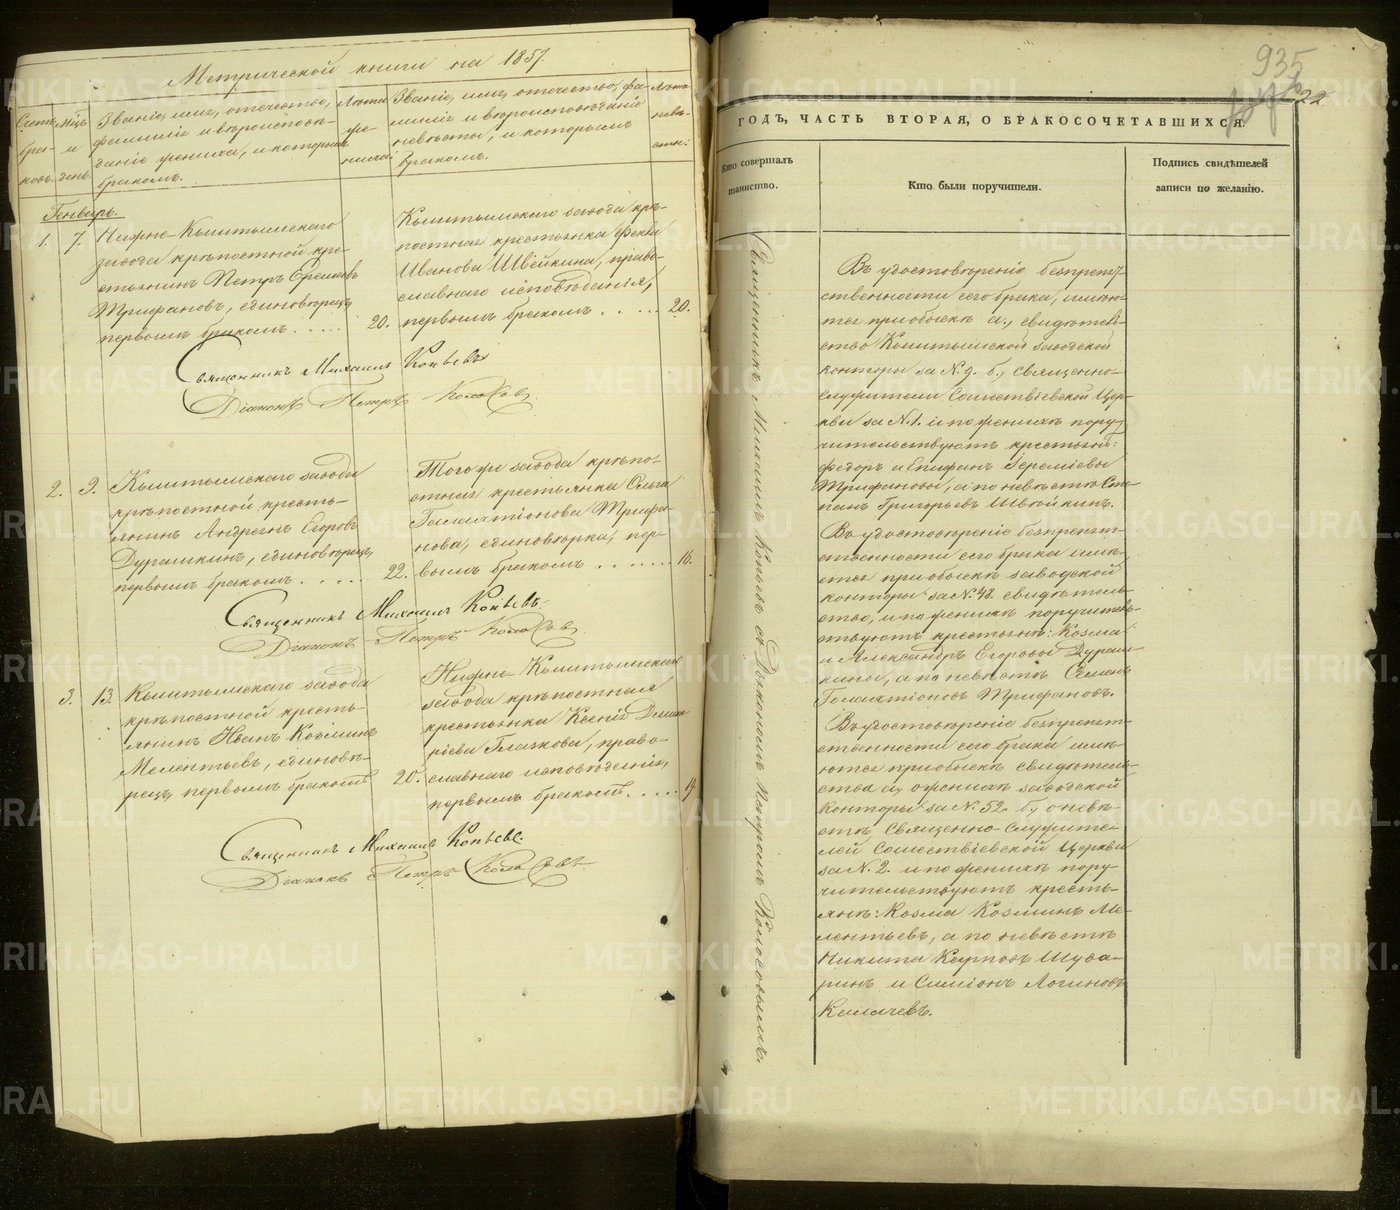 Метрической книги на 1857.
Счетъ бра- ковъ.
Мѣц. и день.
Званіе, имя, отечество, фамилія и вѣроисповѣ-
даніе жениха, и которымъ
бракомъ.
Лѣта же- ниха.
Званіе, имя, отечество, фа-
милія и вѣроисповѣданіе
невѣсты, и которымъ
бракомъ.
Лѣта невѣ- сты.
Генварь.
1. 7. Нижне-Кыштымскаго
завода крѣпостной кре-
стьянинъ Петръ Еремѣевъ
Трифановъ, единовѣрецъ,
первымъ бракомъ . . . . . 20.
Кыштымскаго завода крѣ-
постная крестьянка Фекла
Иванова Швейкина, право-
славнаго исповѣданія,
первымъ бракомъ . . . . . 20.
Священникъ Михаилъ Копьевъ
Діаконъ Петръ Колосовъ.
2. 9. Кыштымскаго завода
крѣпостной кресть-
янинъ Андреянъ Егоровъ
Дурашкинъ, единовѣрецъ,
первымъ бракомъ . . . . . 22.
Того же завода крѣпо-
стная крестьянка Ольга
Галактіонова Трифа-
нова, единовѣрка, пер-
вымъ бракомъ . . . . . . . 16.
Священникъ Михаилъ Копьевъ.
Діаконъ Петръ Колосовъ.
3. 13. Кыштымскаго завода
крѣпостной кресть-
янинъ Иванъ Козминъ
Мелентьевъ, единовѣ-
рецъ, первымъ бракомъ 20.
Нижне-Кыштымскаго
завода крѣпостная
крестьянка Ксенія Димит-
ріева Глазкова, право-
славнаго исповѣданія,
первымъ бракомъ. . . . . 19.
Священникъ Михаилъ Копьевъ.
Діаконъ Петръ Колосовъ
935
22
ГОДЪ, ЧАСТЬ ВТОРАЯ, О БРАКОСОЧЕТАВШИХСЯ.
Кто совершалъ
таинство.
Кто были поручители.
Подпись свидѣтелей
записи по желанію.
Священникъ Михаилъ Копьевъ съ Діакономъ Петромъ Колосовымъ.
Въ удостовѣреніе безпрепят-
ственности сего брака, имѣю-
тся при обыскѣ а., свидѣтель-
ство Кыштымской заводской
конторы за №. 9. б., священно-
служители Сошествіевской Цер-
кви за №. 1. и по женихѣ пору-
чительствуютъ крестьян:
Федоръ и Епифанъ Іереміевы
Трифановы, а по невѣстѣ Сте-
панъ Григорьевъ Швейкинъ.
Въ удостовѣреніе безпрепят-
ственности сего брака имѣ-
ется при обыскѣ заводской
конторы за №. 48. свидѣтель-
ство, и по женихѣ поручитель-
ствуютъ крестьян: Козма
и Александръ Егоровы Дураш-
кины, а по невѣстѣ Семенъ
Галактіоновъ Трифановъ.
Въ удостовѣреніе безпрепят-
ственности сего брака имѣ-
ются при обыскѣ свидѣтель-
ства а., о женихѣ заводской
конторы за №. 52. б., о невѣ-
стѣ Священно-служите-
лей Сошествіевской Церкви
за №. 2. и по женихѣ пору-
чительствуютъ кресть-
янъ: Козма Козминъ Ме-
лентьевъ, а по невѣстѣ
Никита Карповъ Шува-
ринъ и Симіонъ Логиновъ
Калачевъ.
METRIKI.GASO-URAL.RU